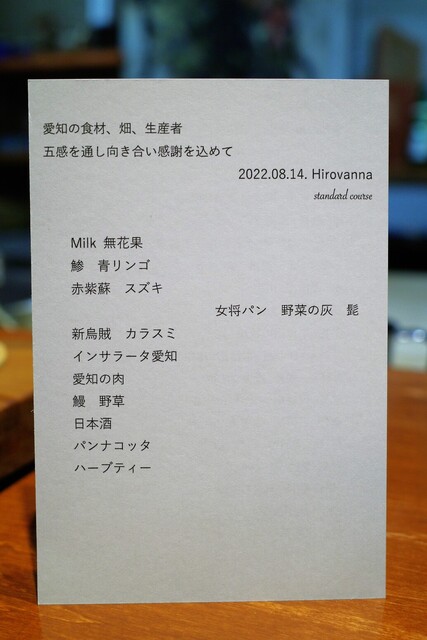 愛知の食材、畑、生産者
五感を通し向き合い感謝を込めて
2022.08.14. Hirovanna
standard course
Milk 無花果
鯵　青リンゴ
赤紫蘇　スズキ
女将パン　野菜の灰　髭
新烏賊　カラスミ
インサラータ愛知
愛知の肉
鰻　野草
日本酒
パンナコッタ
ハーブティー